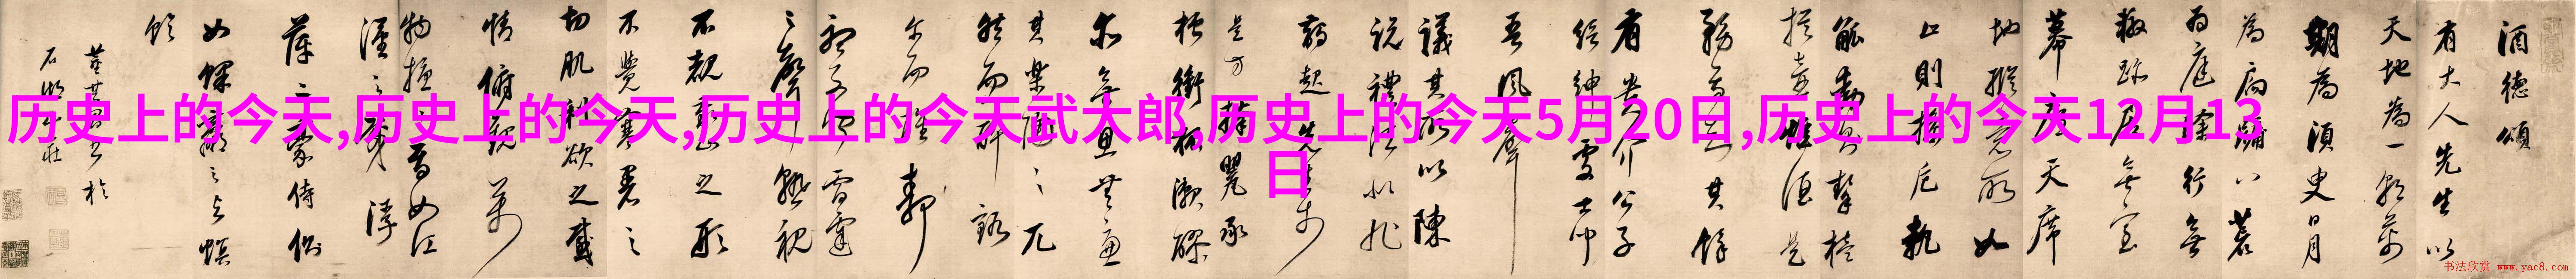 酒德頌
有大人先生以
天地為一朝萬
期為須臾日月
為扃牖八荒
為庭除行無
轍跡居無室
幕天席
地縱意所如
止則操卮執
觚動則挈榼
提壺惟酒是
務焉知其餘
有貴介公子
縉紳處士
吾風聲
議其所以陳
說禮法
先生於
是方捧甖承
槽銜杯漱醪
無思無慮
其樂陶陶兀
然而醉
爾而醒靜
聽不聞雷霆
之聲熟視
不覩泰山之形
不覺寒暑之
切肌利欲之感
情俯觀萬
物擾擾焉如江
漢之載浮
萍二豪侍側
如蜾蠃之與螟
蛉
董其昌書於
石湖
历史上的今天,历史上的今天,历史上的今天武大郎,历史上的今天5月20日,历史上的今天12月13
日
书法欣赏 www.yac8.com